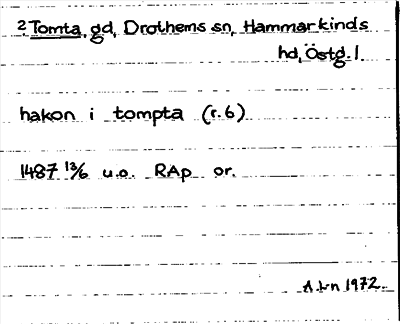 2 Tomta, gd, Drothems sn, Hammarkinds
hd, Östg. l.
hakon i tompta (r. 6)
1487 13/6 u.o. RAp or.
1972